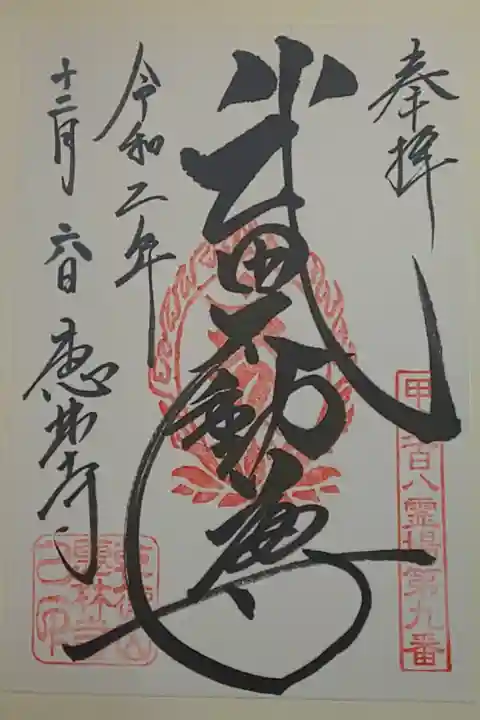 奉拝
甲斐百八霊場第九番
武田不動尊
令和二年
十二月六日 恵林寺